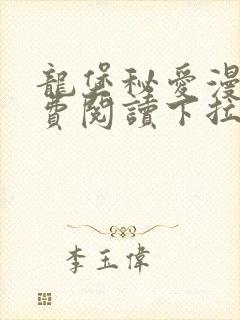 龍堡秘愛漫
費閱讀下拉
李玉偉